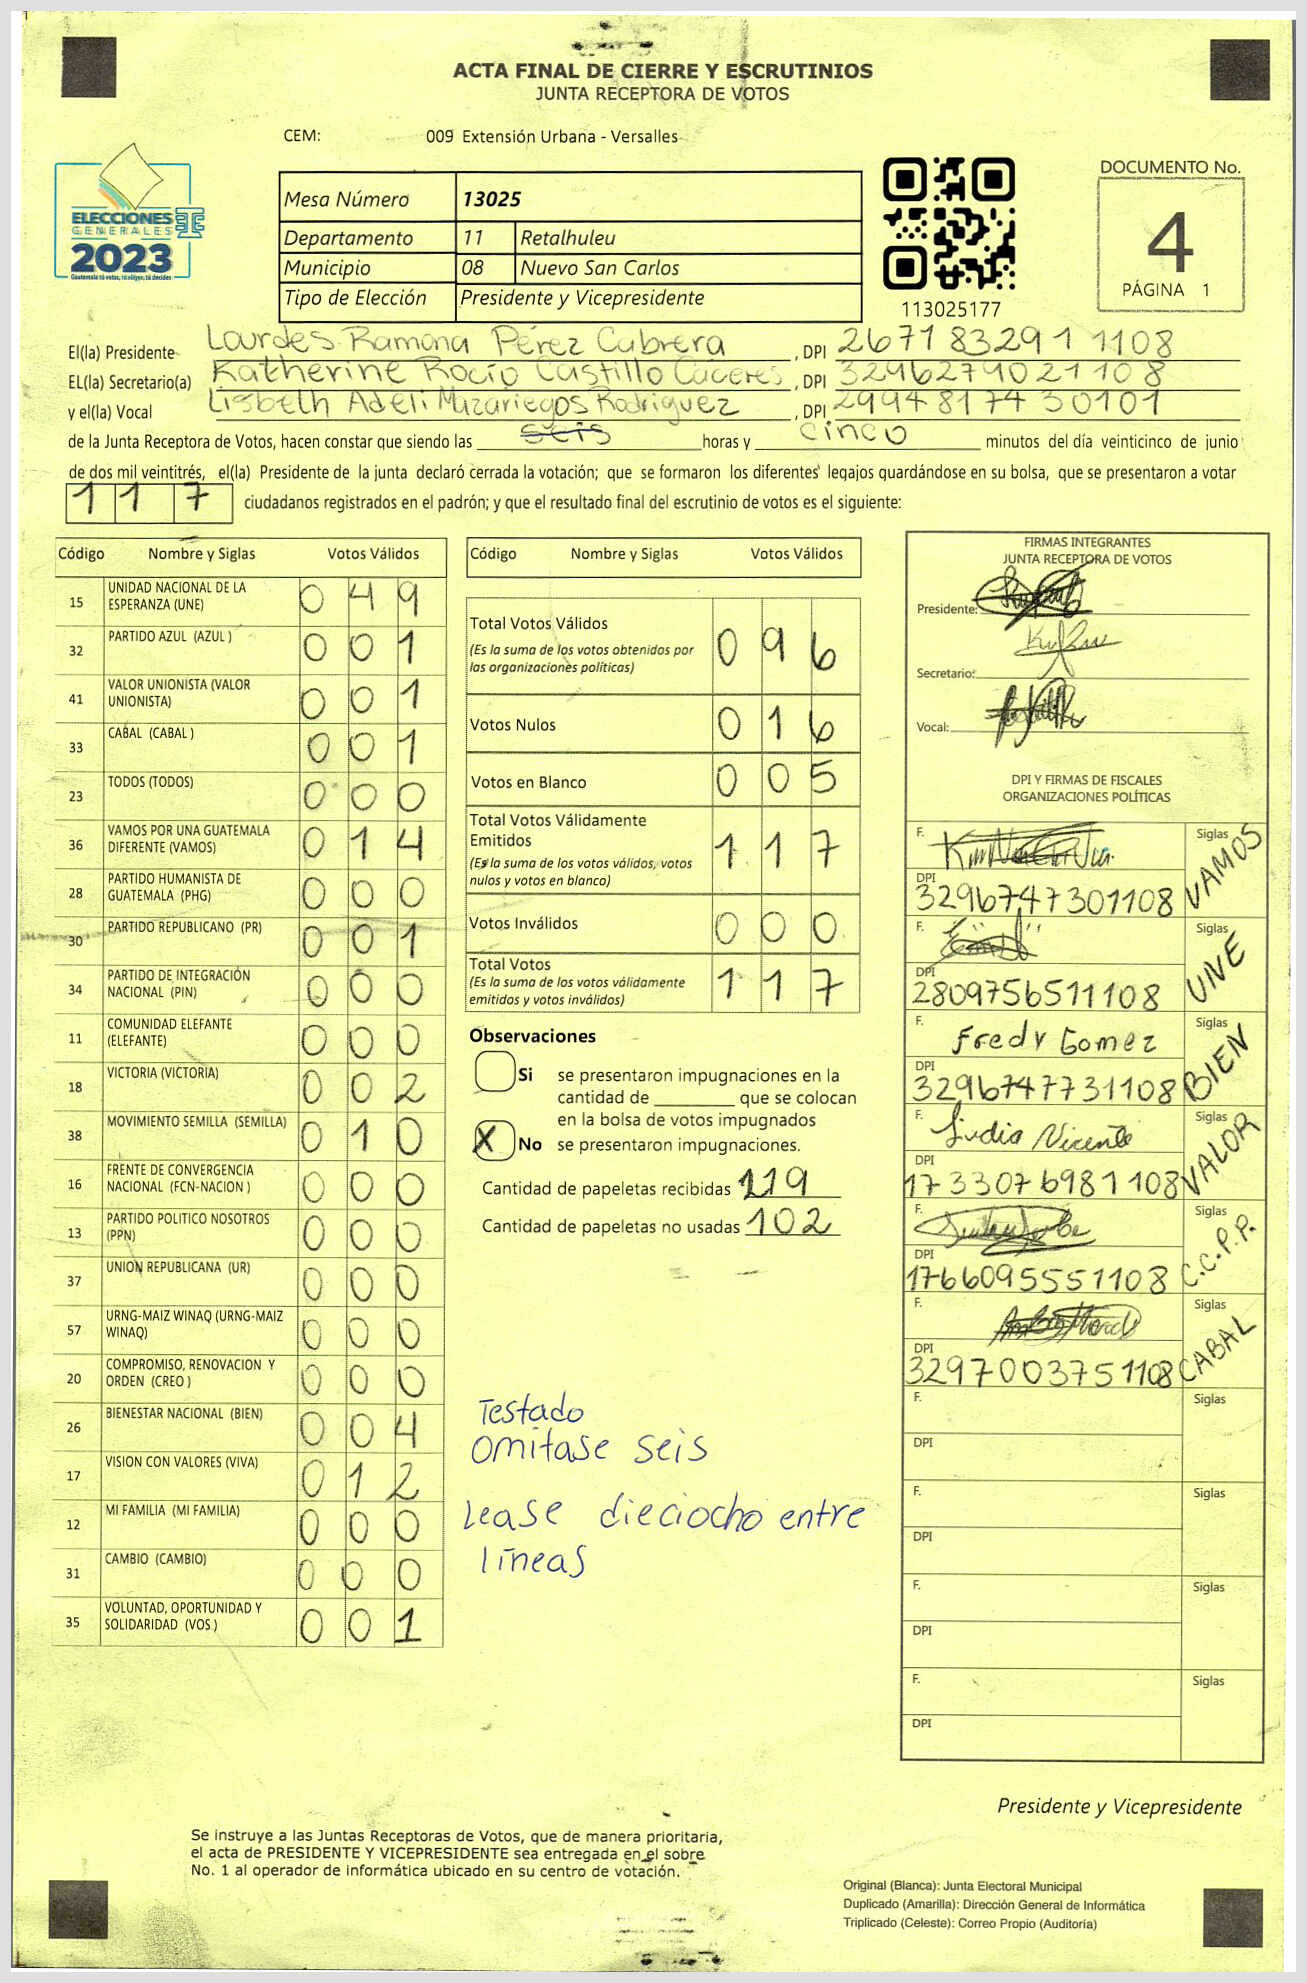 ACTA FINAL DE CIERRE Y ESCRUTINIOS
JUNTA RECEPTORA DE VOTOS
CEM: 009 Extensión Urbana - Versalles
ELECCIONES
GENERALES
2023
Guatemala tú votas, tú eliges, tú decides
Mesa Número 13025
Departamento 11 Retalhuleu
Municipio 08 Nuevo San Carlos
Tipo de Elección Presidente y Vicepresidente
113025177
DOCUMENTO No.
4
PÁGINA 1
El(la) Presidente Lourdes Ramona Pérez Cabrera, DPI 2671 83291 1108
EL(la) Secretario(a) Katherine Rocío Castillo Cáceres, DPI 3296279021108
y el(la) Vocal Lisbeth Adeli Mazariegos Rodriguez, DPI 2994817430101
de la Junta Receptora de Votos, hacen constar que siendo las seis horas y cinco minutos del día veinticinco de junio
de dos mil veintitrés, el(la) Presidente de la junta declaró cerrada la votación; que se formaron los diferentes legajos quardándose en su bolsa, que se presentaron a votar
117 ciudadanos registrados en el padrón; y que el resultado final del escrutinio de votos es el siguiente:
Código Nombre y Siglas Votos Válidos
15 UNIDAD NACIONAL DE LA ESPERANZA (UNE) 0 4 9
32 PARTIDO AZUL (AZUL ) 0 0 1
41 VALOR UNIONISTA (VALOR UNIONISTA) 0 0 1
33 CABAL (CABAL ) 0 0 1
23 TODOS (TODOS) 0 0 0
36 VAMOS POR UNA GUATEMALA DIFERENTE (VAMOS) 0 1 4
28 PARTIDO HUMANISTA DE GUATEMALA (PHG) 0 0 0
30 PARTIDO REPUBLICANO (PR) 0 0 1
34 PARTIDO DE INTEGRACIÓN NACIONAL (PIN) 0 0 0
11 COMUNIDAD ELEFANTE (ELEFANTE) 0 0 0
18 VICTORIA (VICTORIA) 0 0 2
38 MOVIMIENTO SEMILLA (SEMILLA) 0 1 0
16 FRENTE DE CONVERGENCIA NACIONAL (FCN-NACION ) 0 0 0
13 PARTIDO POLITICO NOSOTROS (PPN) 0 0 0
37 UNION REPUBLICANA (UR) 0 0 0
57 URNG-MAIZ WINAQ (URNG-MAIZ WINAQ) 0 0 0
20 COMPROMISO, RENOVACION Y ORDEN (CREO ) 0 0 0
26 BIENESTAR NACIONAL (BIEN) 0 0 4
17 VISION CON VALORES (VIVA) 0 1 2
12 MI FAMILIA (MI FAMILIA) 0 0 0
31 CAMBIO (CAMBIO) 0 0 0
35 VOLUNTAD, OPORTUNIDAD Y SOLIDARIDAD (VOS ) 0 0 1
Código Nombre y Siglas Votos Válidos
Total Votos Válidos 0 9 6
(Es la suma de los votos obtenidos por
las organizaciones políticas)
Votos Nulos 0 1 6
Votos en Blanco 0 0 5
Total Votos Válidamente
Emitidos 1 1 7
(Es la suma de los votos válidos, votos
nulos y votos en blanco)
Votos Inválidos 0 0 0
Total Votos 1 1 7
(Es la suma de los votos válidamente
emitidos y votos inválidos)
Observaciones
Si se presentaron impugnaciones en la
cantidad de ________ que se colocan
en la bolsa de votos impugnados
X No se presentaron impugnaciones.
Cantidad de papeletas recibidas 119
Cantidad de papeletas no usadas 102
Testado
omitase seis
Lease dieciocho entre
lineas
FIRMAS INTEGRANTES
JUNTA RECEPTORA DE VOTOS
Presidente:
Secretario:
Vocal:
DPI Y FIRMAS DE FISCALES
ORGANIZACIONES POLÍTICAS
F. Siglas VAMOS
DPI 3296747301108
F. Siglas UNE
DPI 2809756511108
F. Fredy Gomez Siglas BIEN
DPI 3296747731108
F. Lidia Vicente Siglas VALOR
DPI 1733076981108
F. Siglas C.C.P.P.
DPI 1766095551108
F. Siglas CABAL
DPI 3297003751108
F. Siglas
DPI
F. Siglas
DPI
F. Siglas
DPI
F. Siglas
DPI
Presidente y Vicepresidente
Se instruye a las Juntas Receptoras de Votos, que de manera prioritaria,
el acta de PRESIDENTE Y VICEPRESIDENTE sea entregada en el sobre
No. 1 al operador de informática ubicado en su centro de votación.
Original (Blanca): Junta Electoral Municipal
Duplicado (Amarilla): Dirección General de Informática
Triplicado (Celeste): Correo Propio (Auditoría)